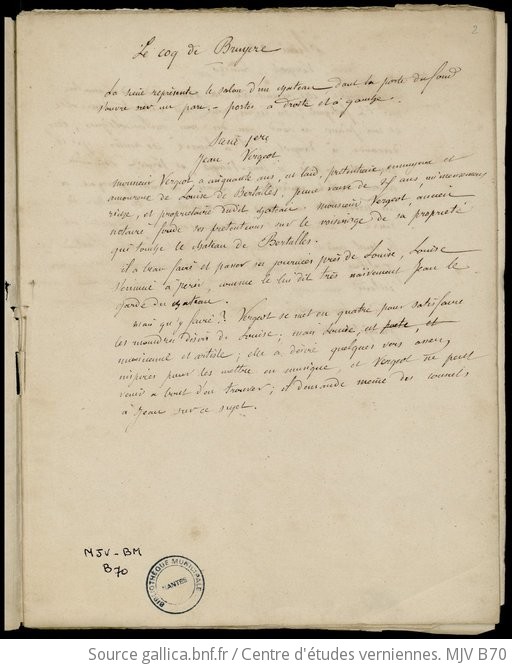 2
Le coq de Bruyère
La scène représente le salon d'un château dont la porte du fond
s'ouvre sur un parc. - portes à droite et à gauche.
Scène 1ere
Jean Vergeot
Monsieur Vergeot a cinquante ans, est laid, prétentieux, ennuyeux et
amoureux de Louise de Bertalles, jeune veuve de
riche, et propriétaire dudit château. Monsieur Vergeot, ancien
notaire fonde ses prétentions sur le voisinage de sa propriété
qui touche le château de Bertalles.
il a beau faire et passer ses journées près de Louise, Louise
s'ennuie à périr, comme le lui dit très naïvement Jean le
garde du château.
mais qu'y faire? Vergeot se met en quatre pour satisfaire
les moindres désirs de Louise; mais Louise est poète, et
musicienne et artiste; elle a désiré quelques vers assez
inspirés pour les mettre en musique, et Vergeot ne peut
venir à bout d'en trouver; il demande même des conseils
à Jean sur ce sujet.
MJV-BM
B70
BIBLIOTHÈQUE MUNICIPALE
NANTES
Source gallica.bnf.fr / Centre d'études verniennes. MJV B70